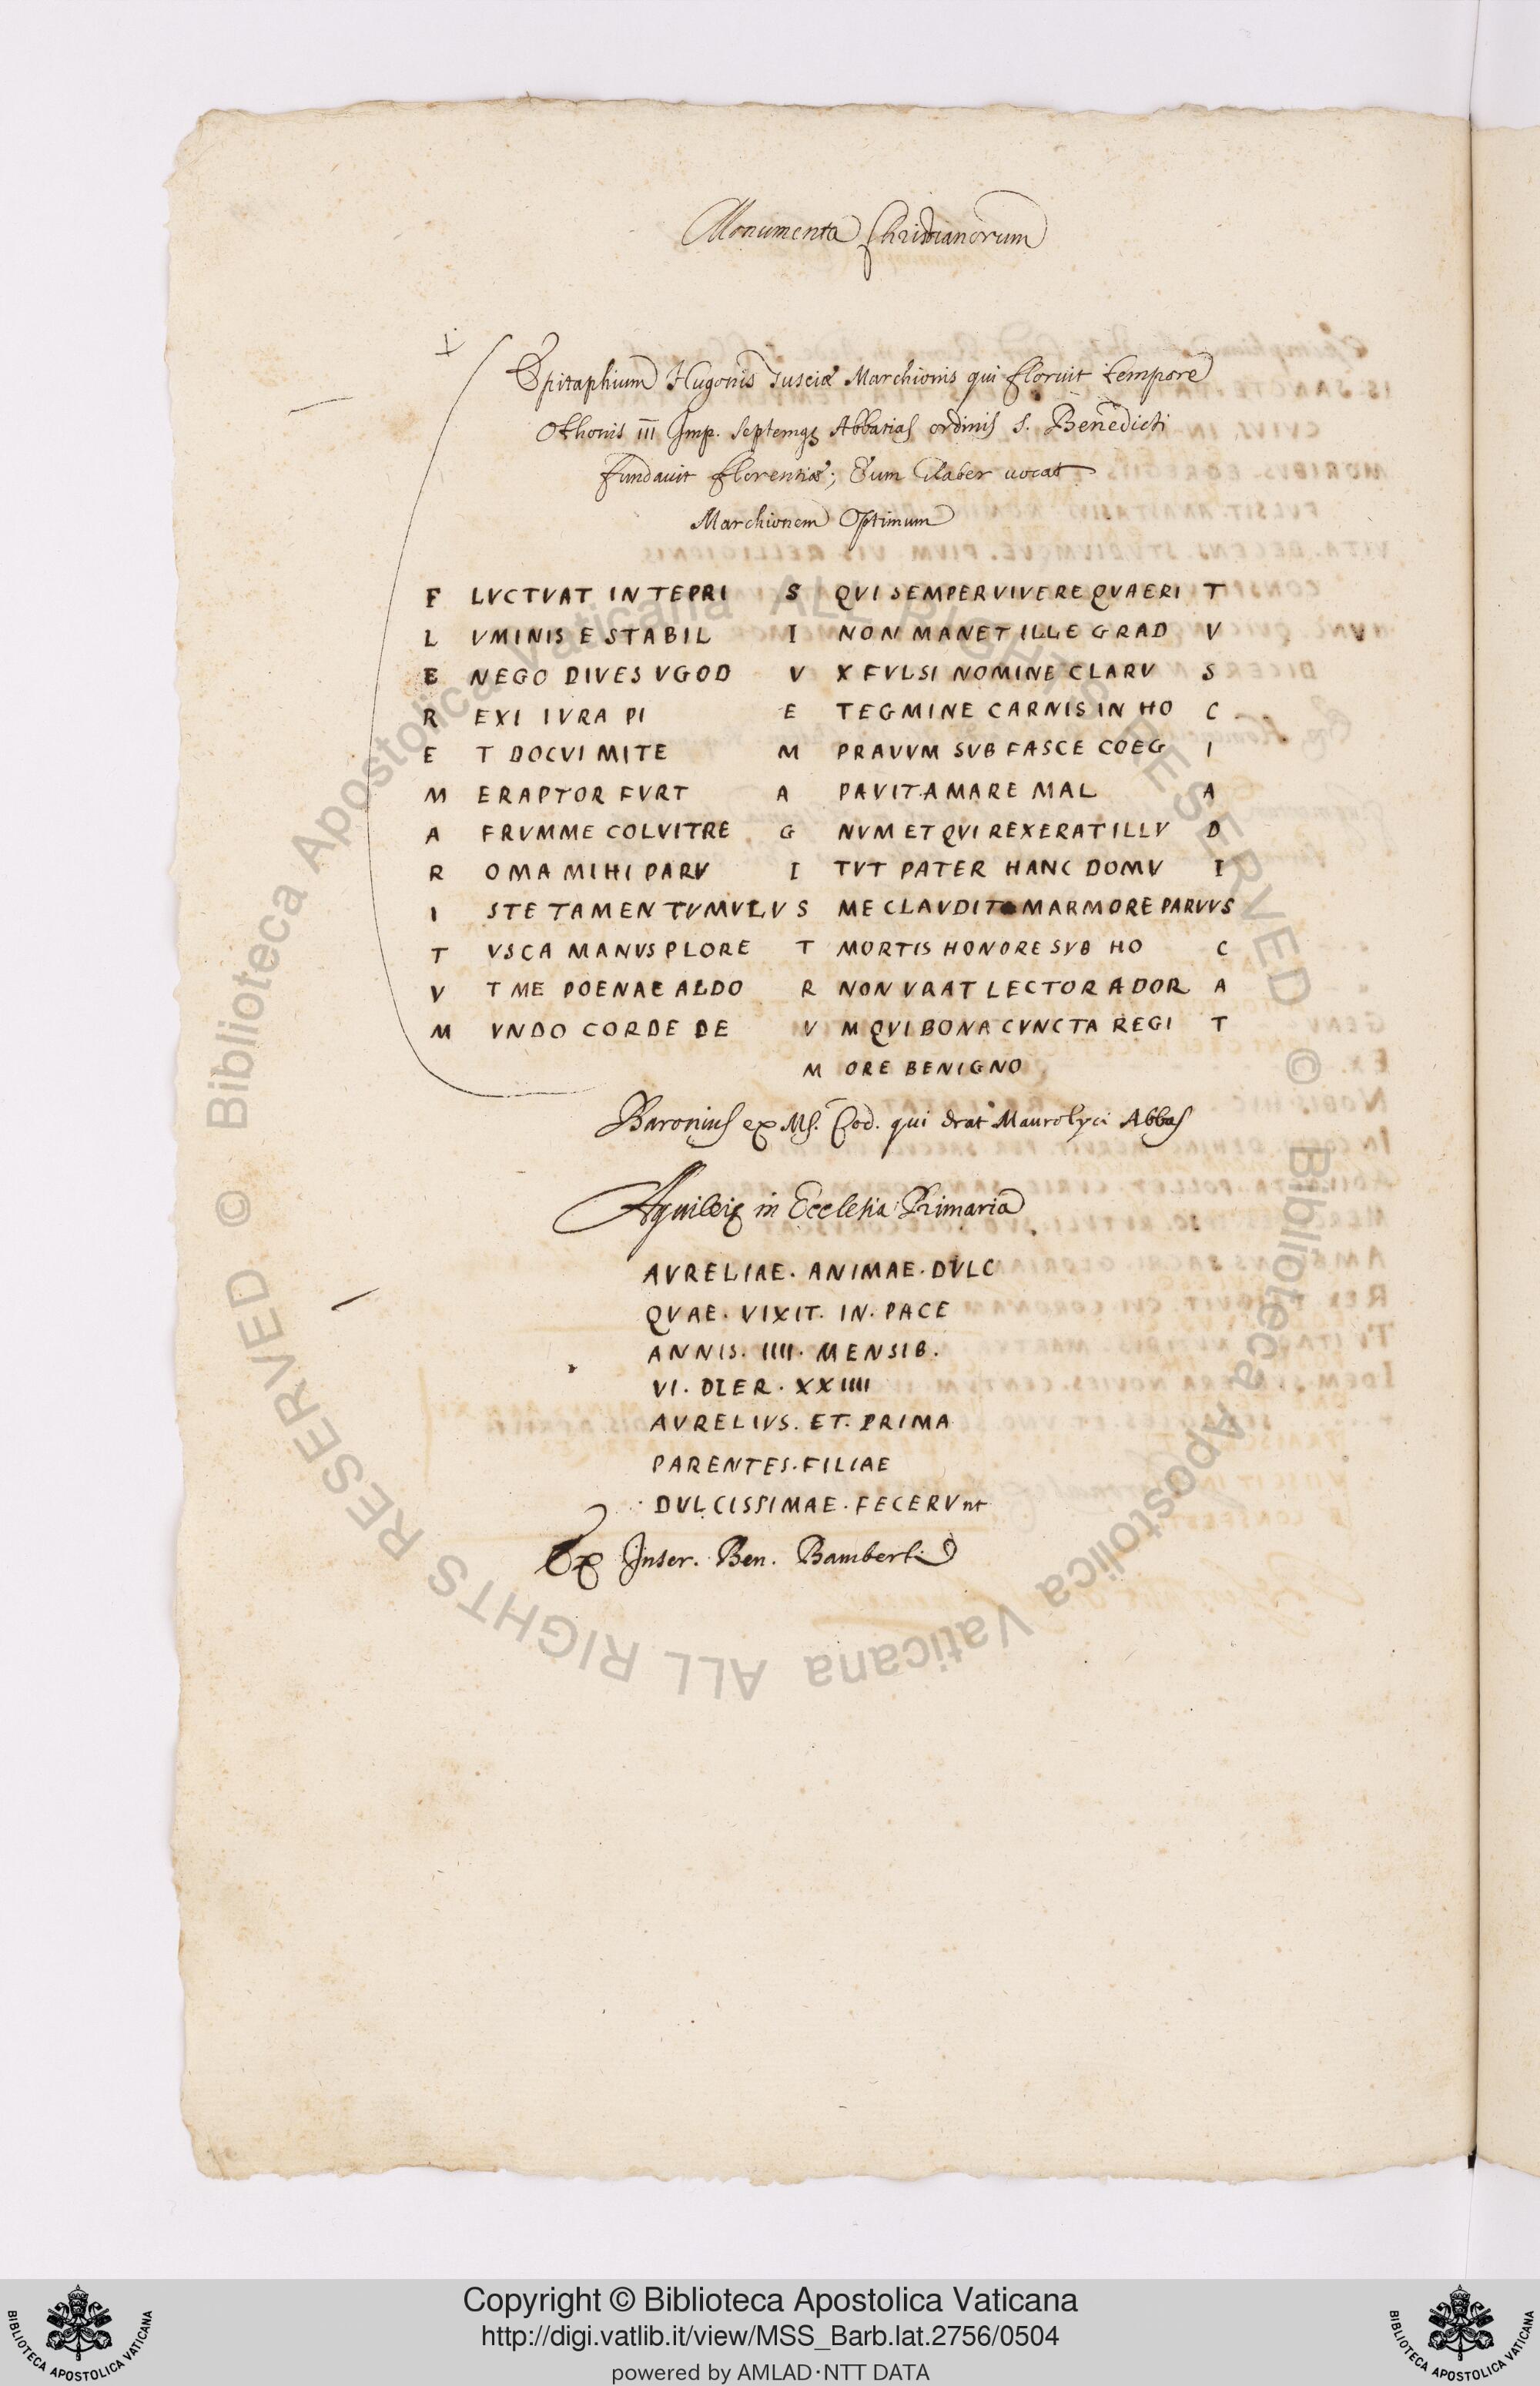 Monumenta Christianorum
Epitaphium Hugonis Tusciæ Marchionis qui floruit tempore
Othonis III Imp. Septemq; Abbatias ordinis S. Benedicti
fundavit florentiæ; Eum Glaber vocat
Marchionem Optimum
F LVCTVAT IN TE PRI S QVI SEMPER VIVERE QVAERI T
L VMINIS E STABIL I NON MANET ILLE GRAD V
E N EGO DIVES VGO D V X FVLSI NOMINE CLARV S
R EXI IVRA PI E TEGMINE CARNIS IN HO C
E T DOCVI MITE M PRAVVM SVB FASCE COEG I
M E RAPTOR FVRT A PAVIT AMARE MAL A
A FRVM ME COLVIT RE G NVM ET QVI REXERAT ILLV D
R OMA MIHI PARV I TVT PATER HANC DOMV I
I STE TAMEN TVMVLV S ME CLAVDIT MARMORE PARVVS
T VSCA MANVS PLORE T MORTIS HONORE SVB HO C
V T ME POENAE ALDO R NON VRAT LECTOR ADOR A
M VNDO CORDE DE V M QVI BONA CVNCTA REGI T
M ORE BENIGNO
Baronius ex Ms. Cod. qui erat Maurolyci Abbas
Aquileię in Ecclesia Primaria
AVRELIAE. ANIMAE. DVLC
QVAE. VIXIT. IN. PACE
ANNIS. IIII. MENSIB.
VI. DIER. XXIIII
AVRELIVS. ET. PRIMA
PARENTES. FILIAE
DVLCISSIMAE. FECERVnt
Ex Inscr. Ben. Bamberti
© Biblioteca Apostolica Vaticana ALL RIGHTS RESERVED © Biblioteca Apostolica Vaticana ALL RIGHTS RESERVED
Copyright © Biblioteca Apostolica Vaticana
http://digi.vatlib.it/view/MSS_Barb.lat.2756/0504
powered by AMLAD·NTT DATA
BIBLIOTECA APOSTOLICA VATICANA
BIBLIOTECA APOSTOLICA VATICANA